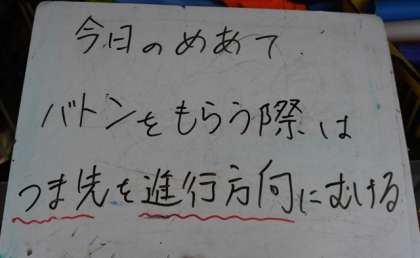 今日のめあて
バトンをもらう際は
つま先を進行方向にむける